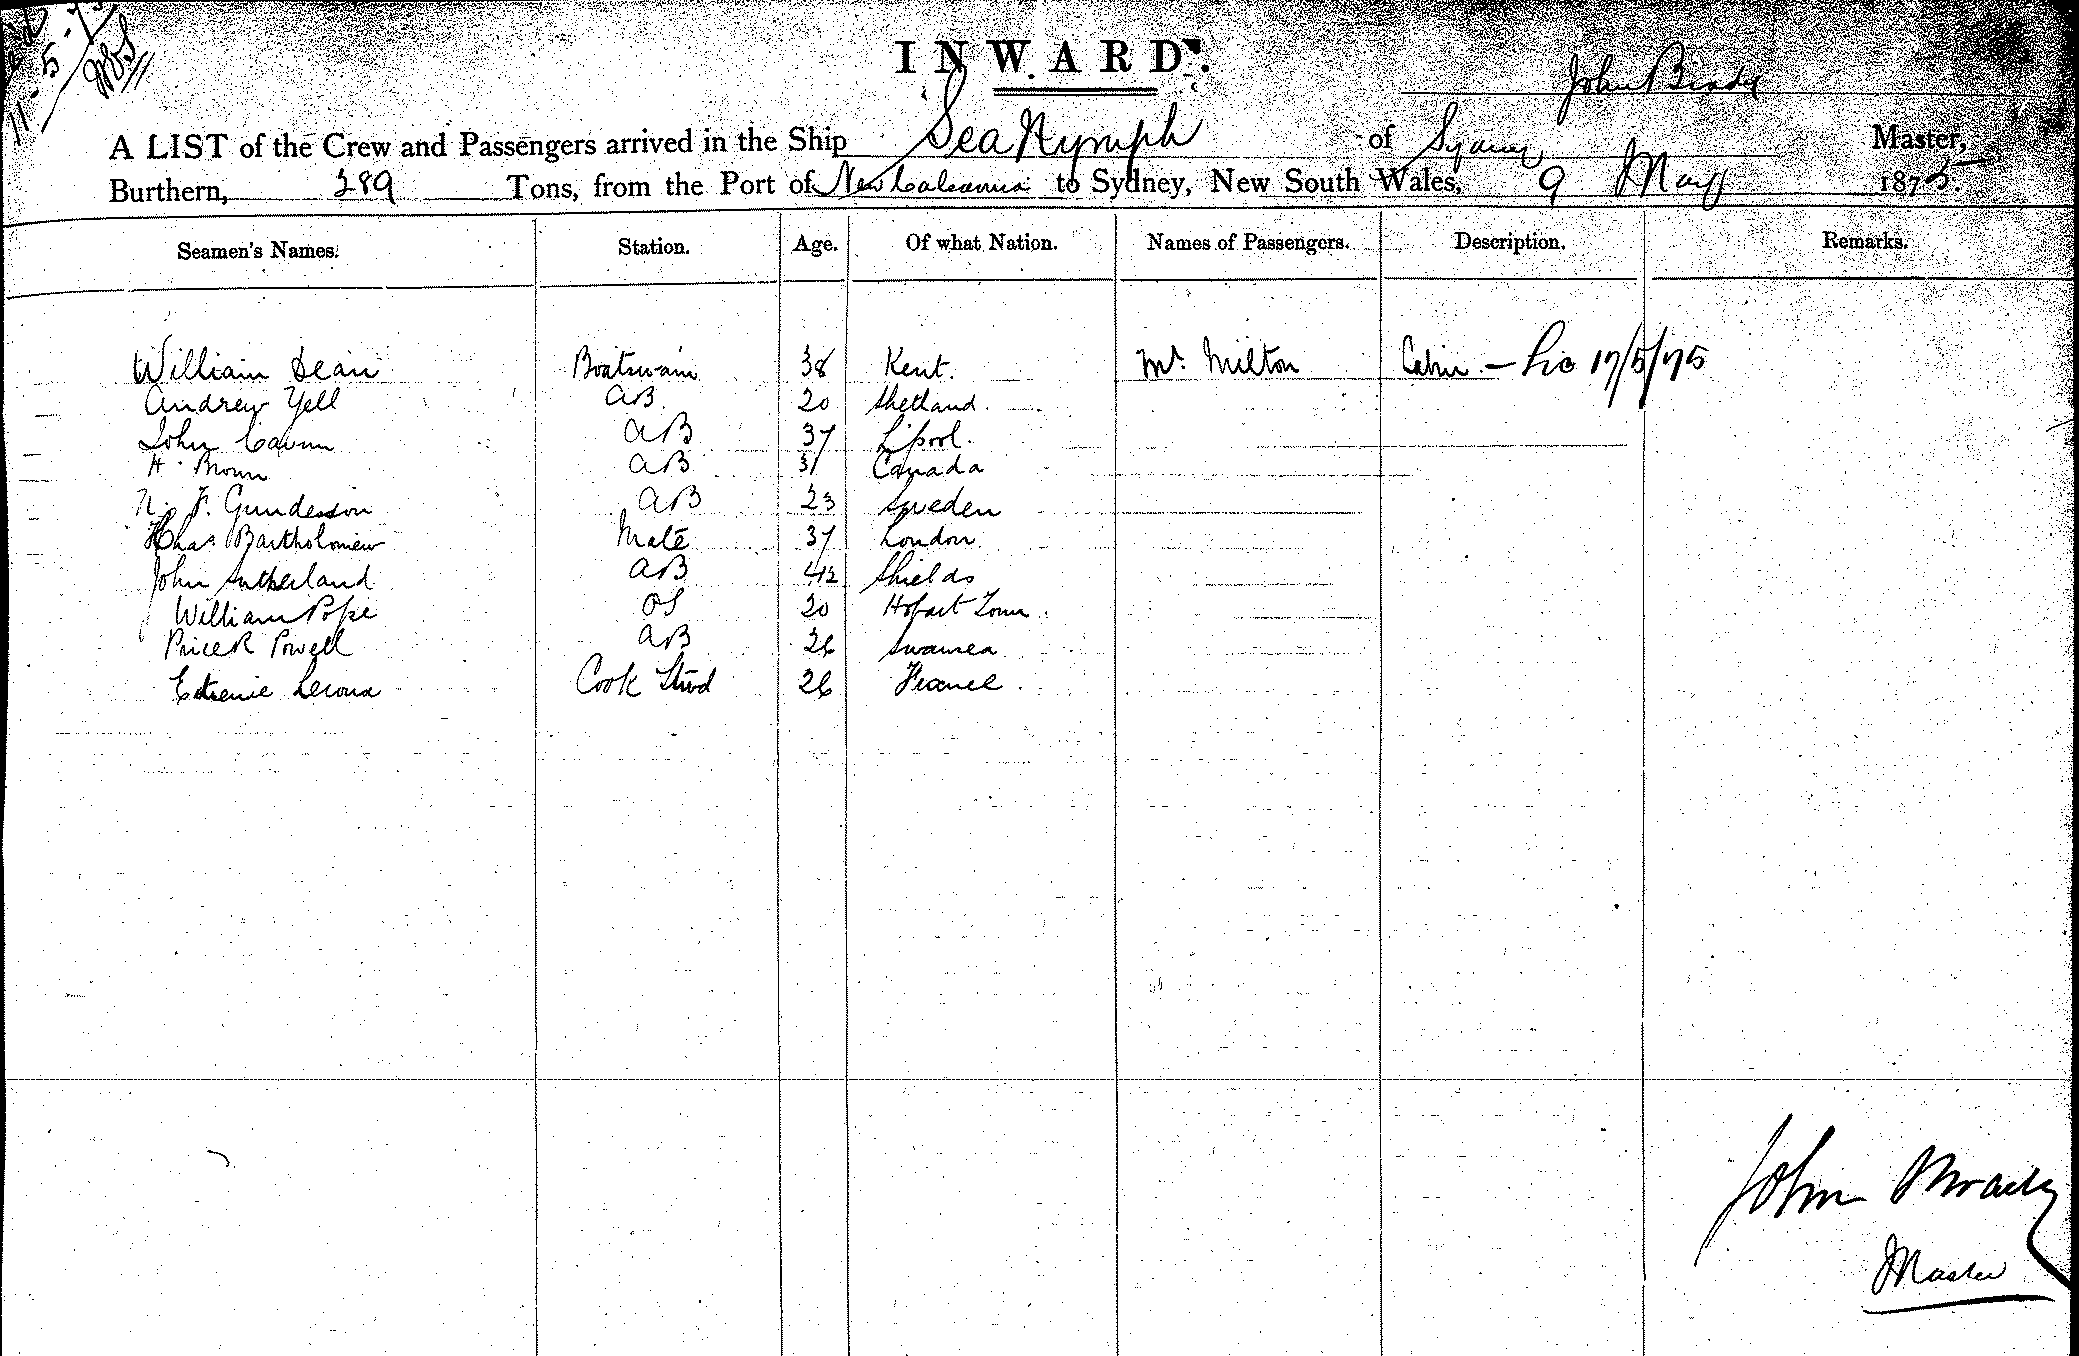 11-5-75
INWARD.
John Brady
A LIST of the Crew and Passengers arrived in the Ship Sea Nymph of Sydney Master,
Burthern, 289 Tons, from the Port of New Caledonia to Sydney, New South Wales, 9 May 1875.
Seamen's Names. Station. Age. Of what Nation. Names of Passengers. Description. Remarks.
William Dean Boatswain 38 Kent. Mr. Milton Cabin - 17/5/75
Andrew Yell AB 20 Shetland
John AB 37 L'pool.
H. Brown AB 31 Canada
N. F. Gunderson AB 23 Sweden
Chas Bartholomew Mate 37 London
John Sutherland AB 42 Shields
William Pope OS 20 Hobart Town
Price R Powell AB 26 Swansea
Leroux Cook Stwd 26 France
John Brady
Master